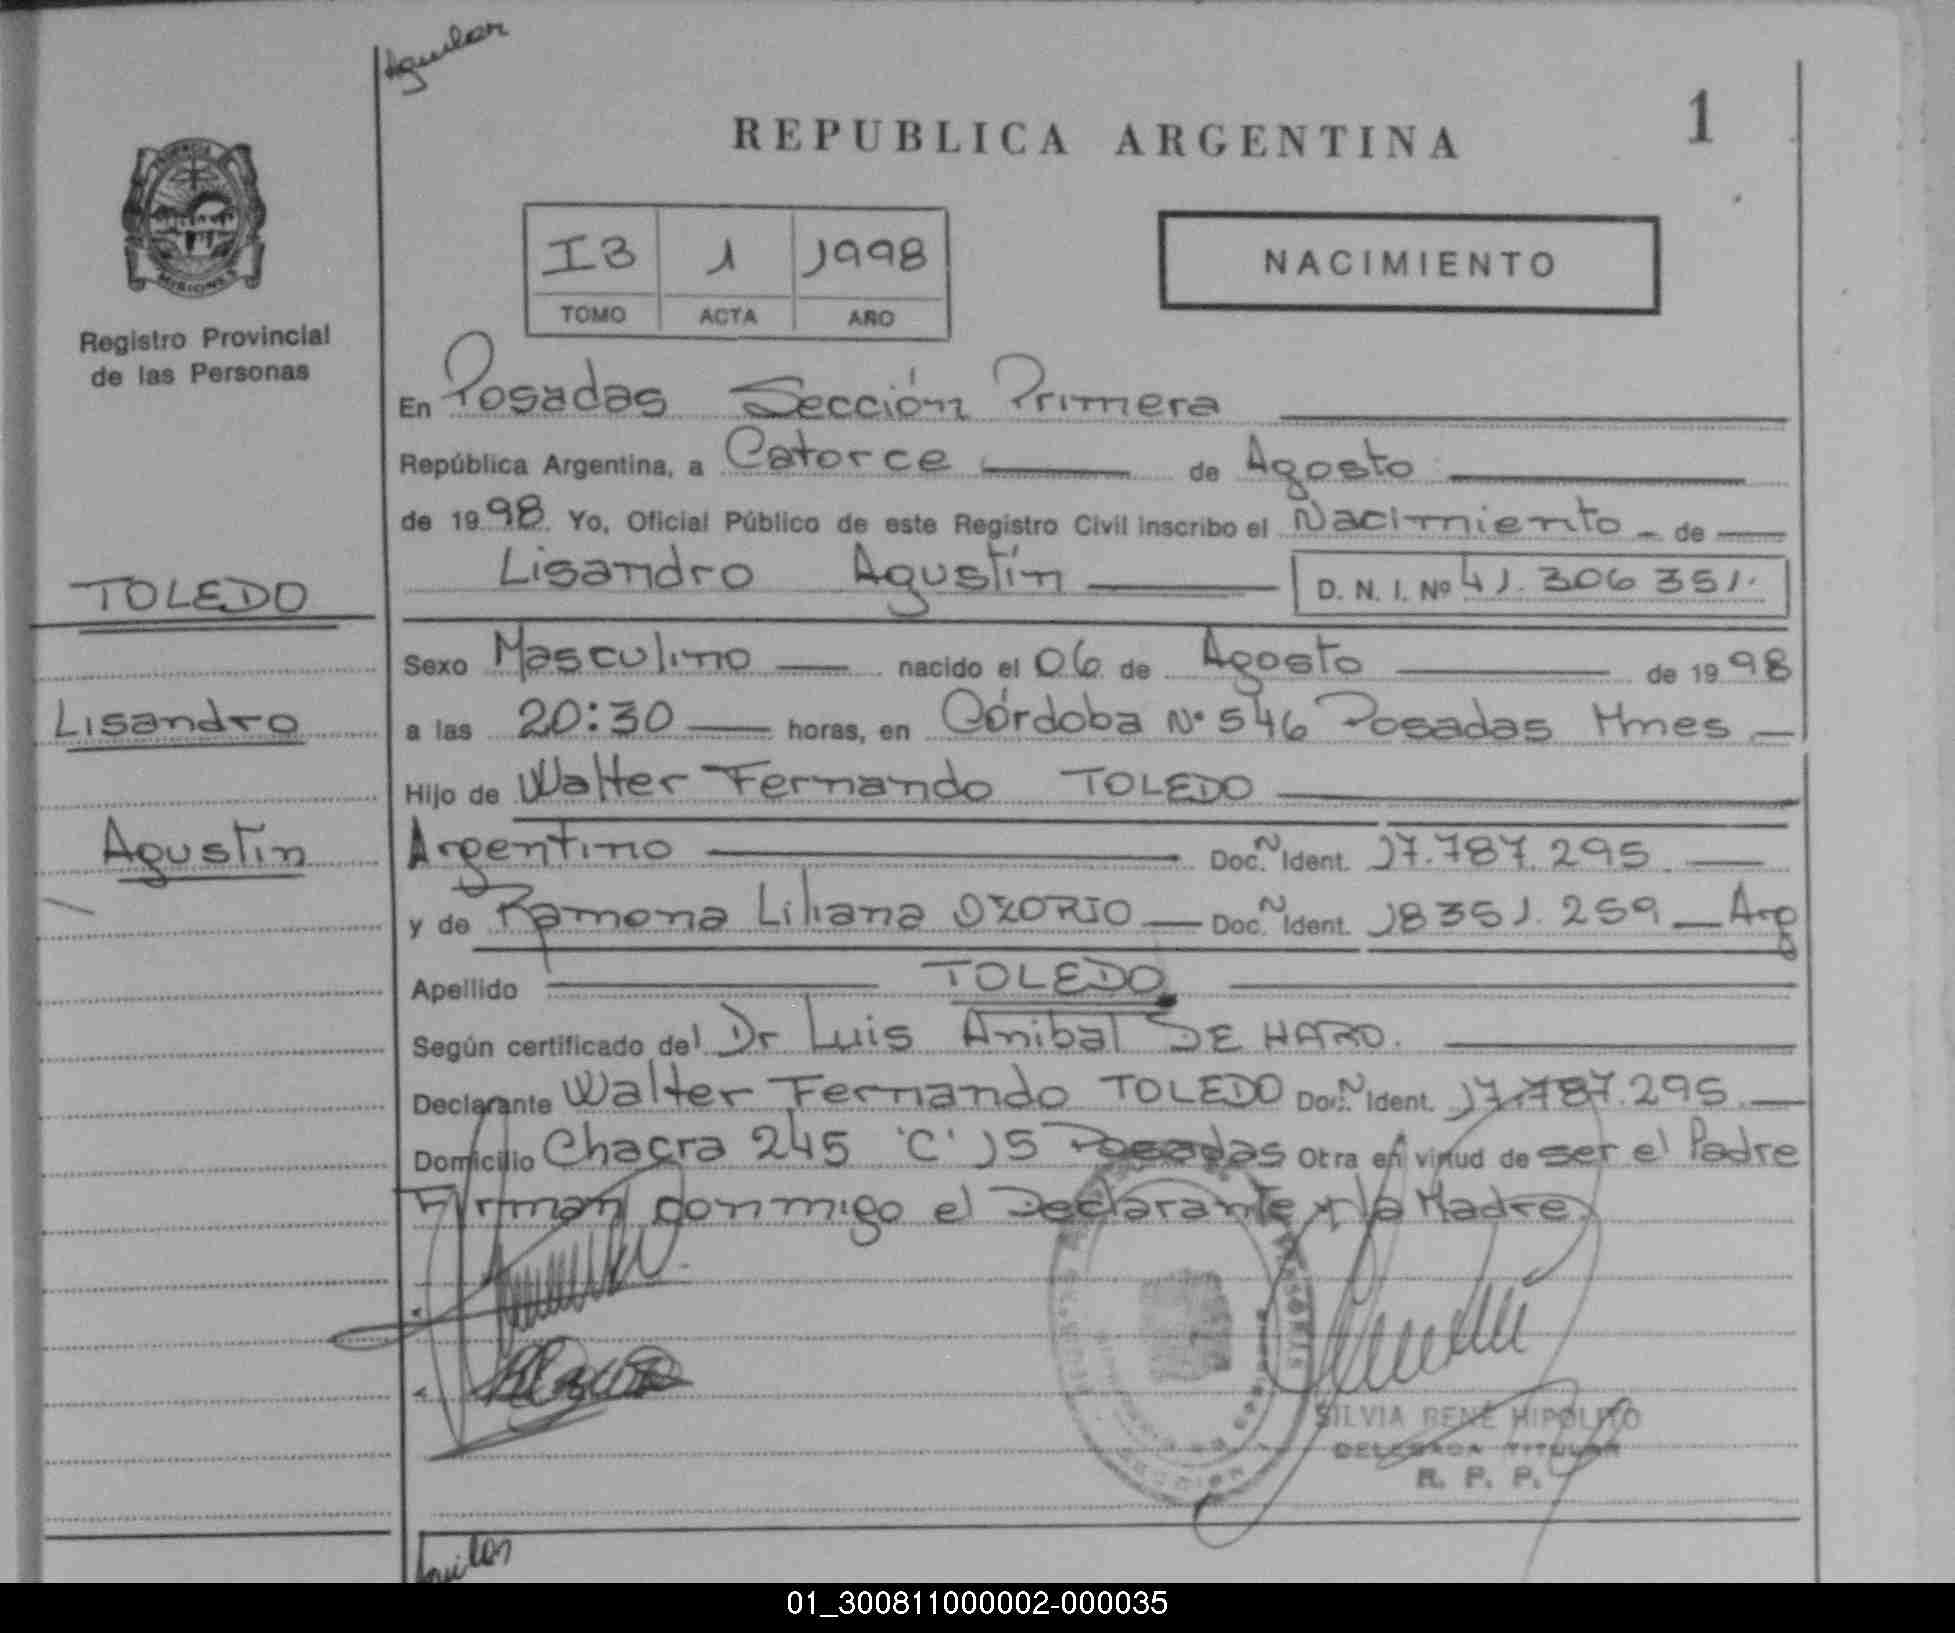 Aguilar
REPUBLICA ARGENTINA
1
PROVINCIA DE MISIONES
Registro Provincial
de las Personas
I3 1 1998
TOMO ACTA AÑO
NACIMIENTO
En Posadas Sección Primera
República Argentina, a Catorce de Agosto
de 1998. Yo, Oficial Público de este Registro Civil inscribo el Nacimiento - de
Lisandro Agustín D. N. I. Nº 41.306351.
TOLEDO
Lisandro
Agustín
Sexo Masculino nacido el 06 de Agosto de 1998
a las 20:30 horas, en Córdoba Nº 546 Posadas Mnes
Hijo de Walter Fernando TOLEDO
Argentino Doc. Ñ Ident. 17.787.295
y de Ramona Liliana OZORIO Doc. Ñ Ident. 18351.259 Arg
Apellido TOLEDO
Según certificado del Dr Luis Anibal DE HARO.
Declarante Walter Fernando TOLEDO Doc. Ñ Ident. 17.787.295
Domicilio Chacra 245 "C" 15 Posadas Otra en virtud de ser el Padre
Firman conmigo el Declarante y la Madre
SILVIA RENÉ HIPOLITO
DELEGADA TITULAR
R. P. P.
Aguilar
01_300811000002-000035